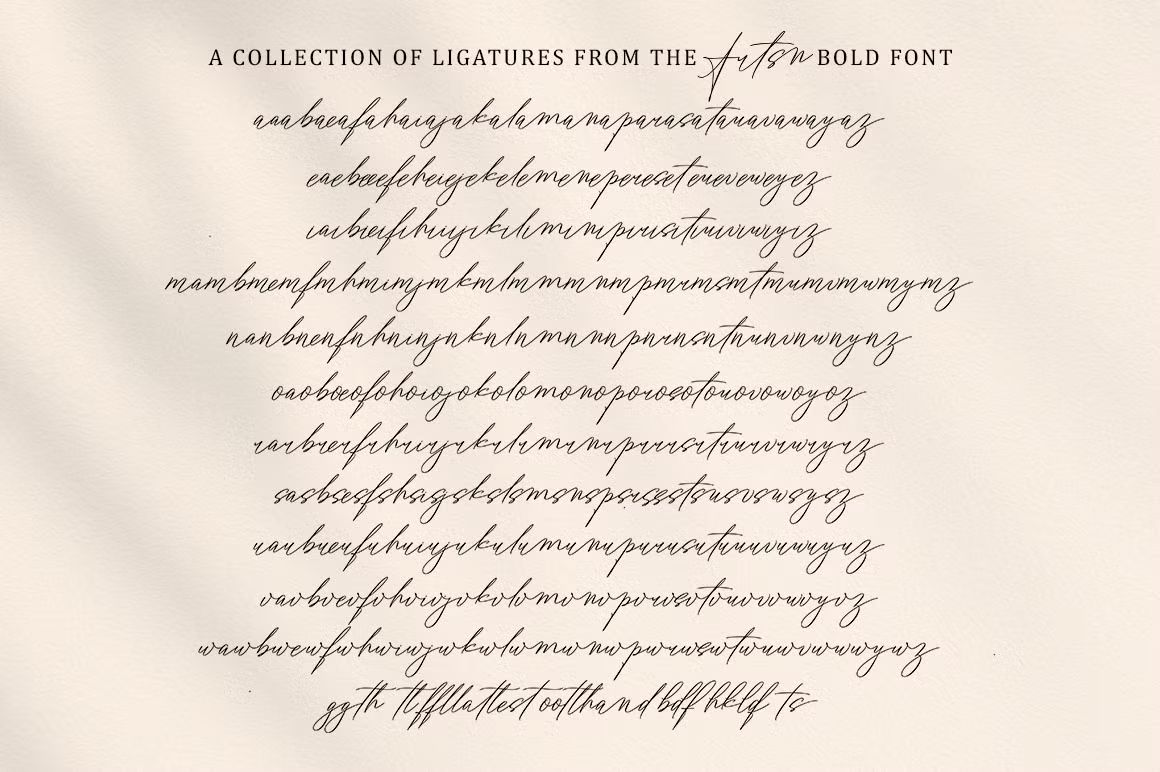 A COLLECTION OF LIGATURES FROM THE Artsn BOLD FONT
aaabaeafahaiajakalamanaparasatauavawayaz
eaebeeefeheiejekelemenepereseteueveweyez
iaibieifihiiijikiliminipirisitiuiviwiyiz
mambmemfmhmimjmkmlmmmnmpmrmsmtmumvmwmymz
nanbnenfnhninjnknlnmnnnpnrnsntnunvnwnynz
oaoboeofohoiojokolomonoporosotouovowoyoz
rarbrerfrhrirjrkrlrmrnrprrrsrtrurvrwryrz
sasbsesfshsisjskslsmsnspsrssstsusvswsysz
uaubueufuhuiujukulumunupurusutuuuvuwuyuz
vavbvevfvhvivjvkvlvmvnvpvrvsvtvuvvvwvyvz
wawbwewfwhwiwjwkwlwmwnwpwrwswtwuwvwwwywz
ggth ts